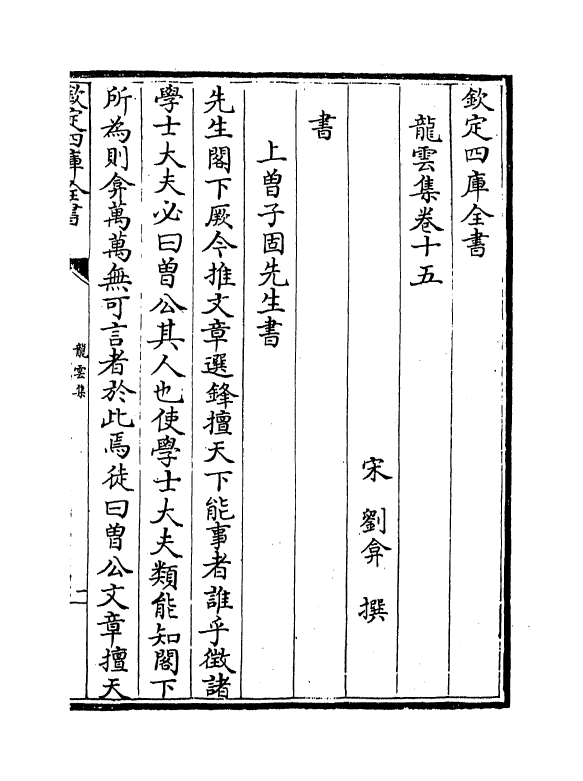 欽定四庫全書
龍雲集卷十五
宋 劉弇 撰
書
上曾子固先生書
先生閣下厥今推文章選鋒擅天下能事者誰乎徵諸
學士大夫必曰曾公其人也使學士大夫類能知閣下
所為則弇萬萬無可言者於此焉徒曰曾公文章擅天
欽定四庫全書
龍雲集